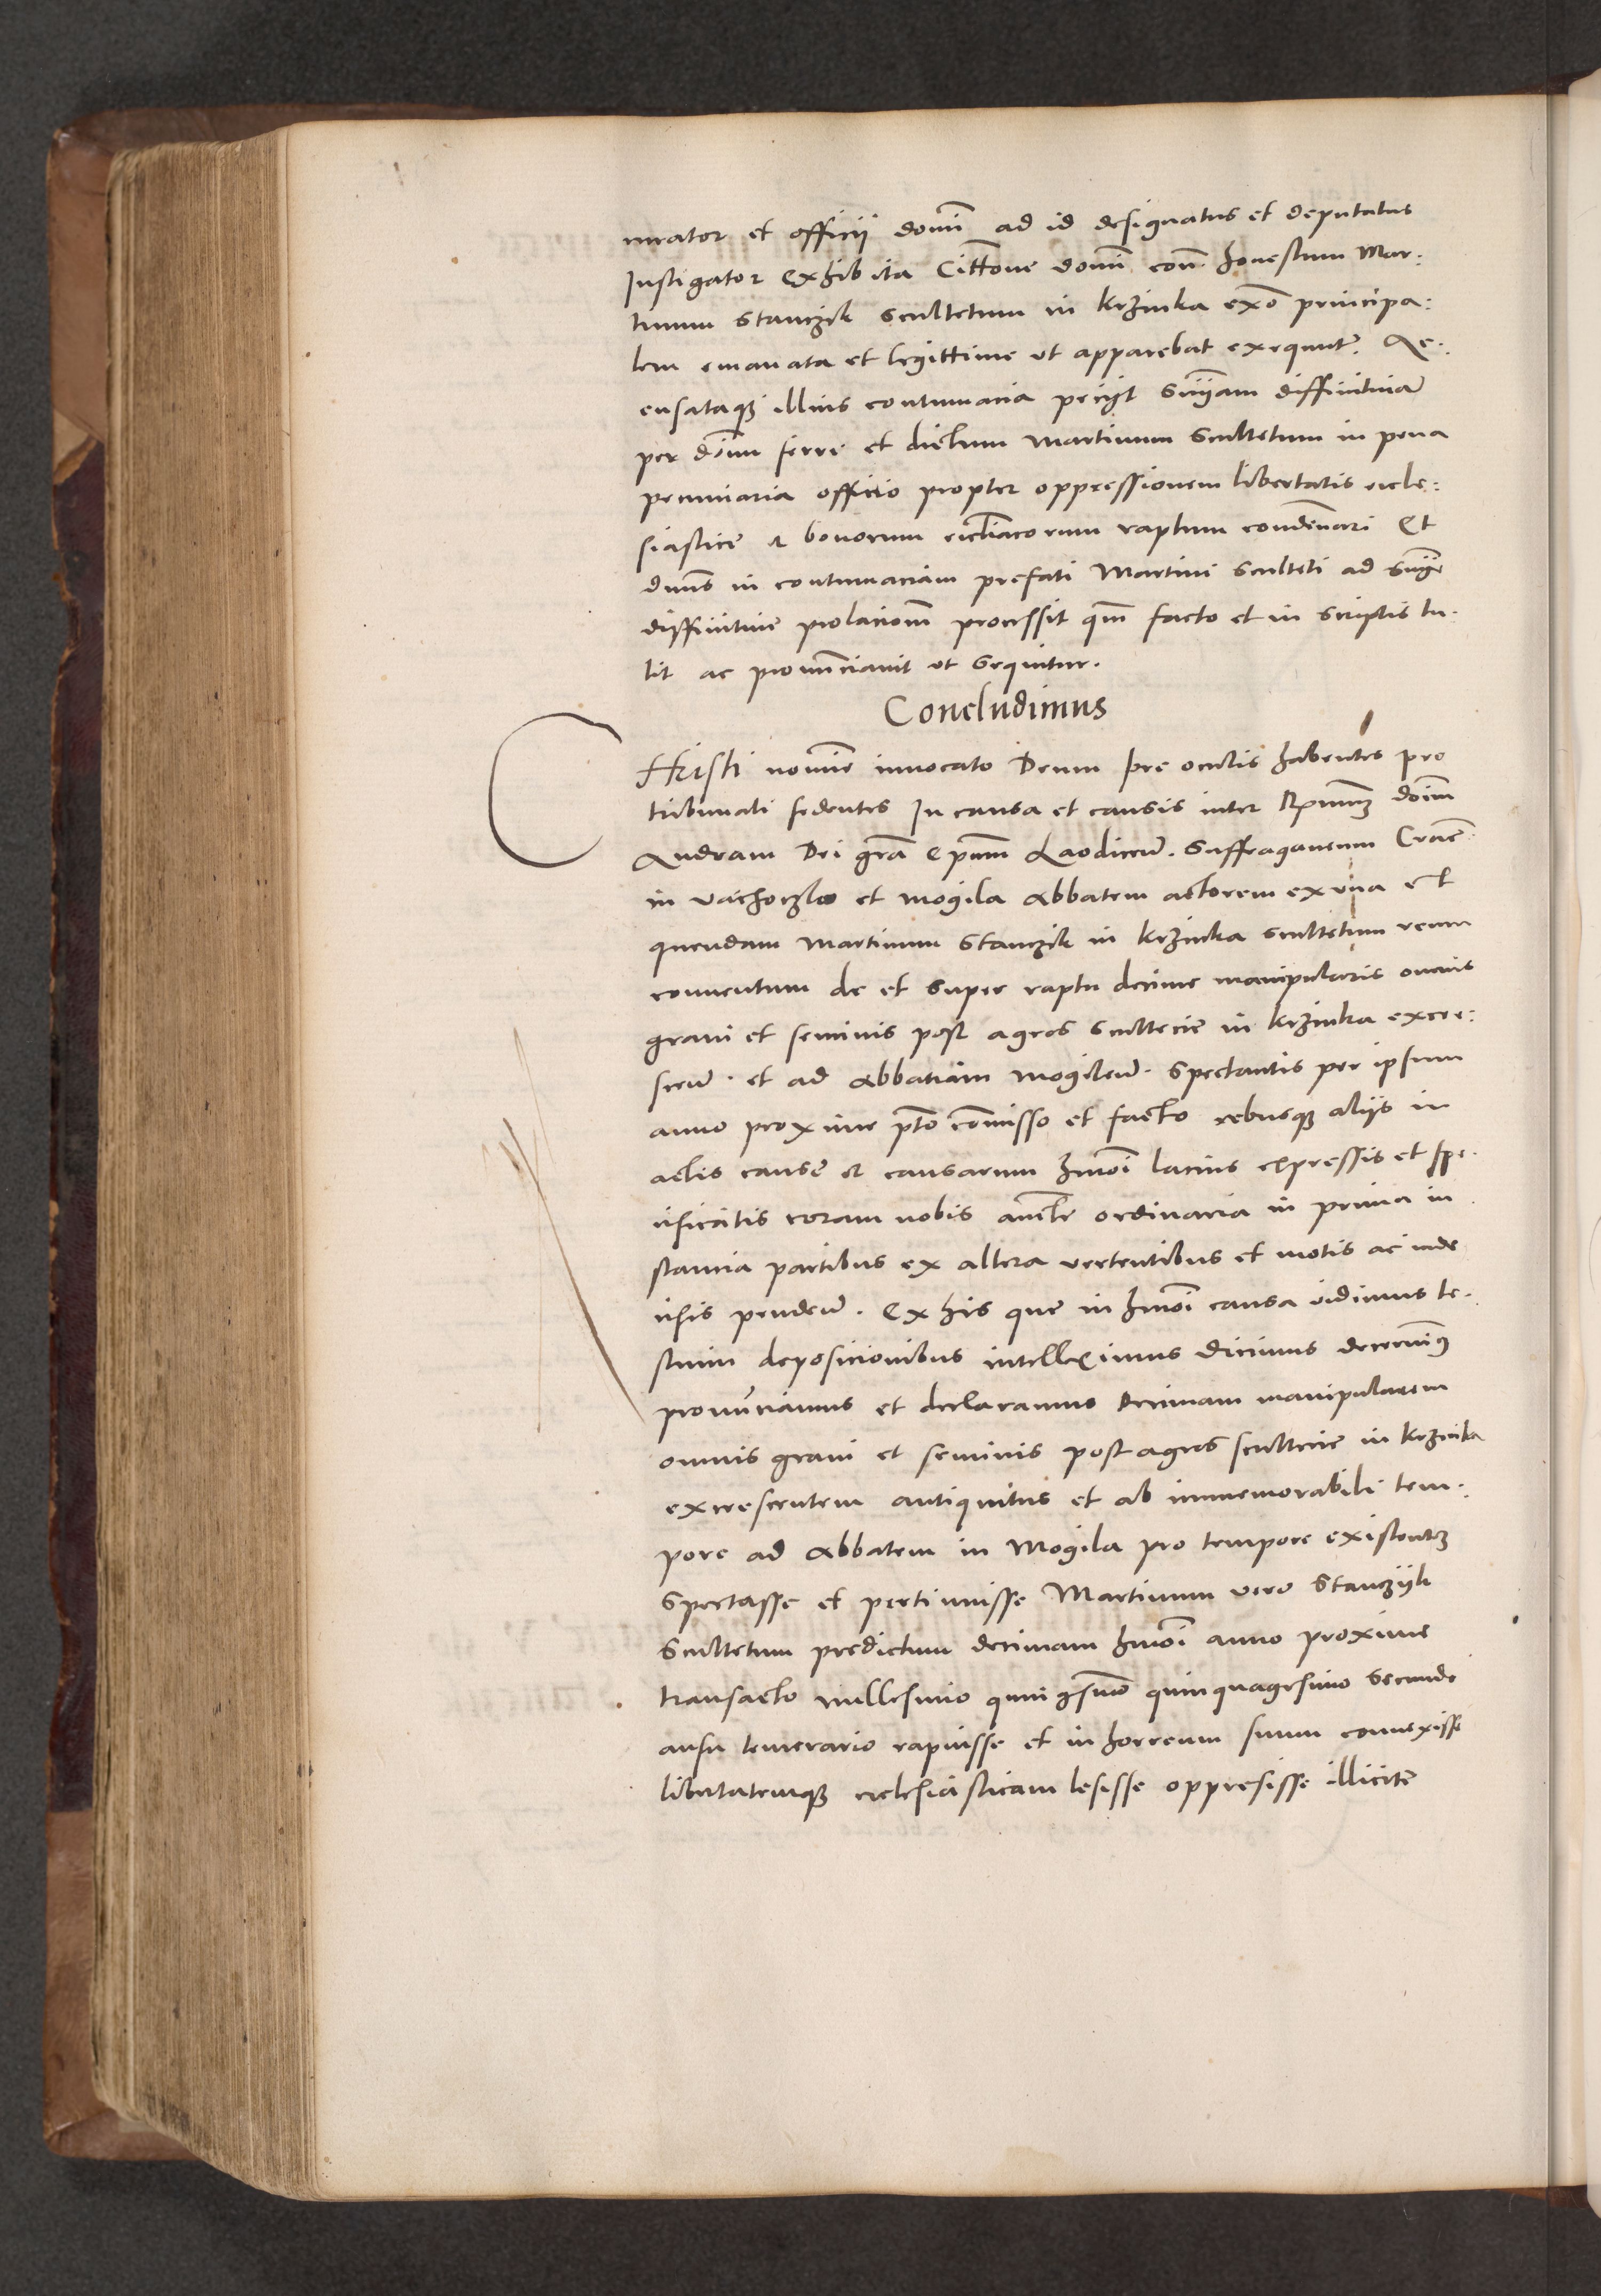 curator et officii domi ad id designatus et deputatus
Instigator exhibita Cittone domi con honestum Mar:
tinum Stanczik scultetum in krzinka exo principa:
lem emanata et legittime ut apparebat exequut Ac:
cusataque illius contumacia peciit sniam diffinitiva
per dnum ferri et dictum Martinum Scultetum in pena
pecuniaria officio propter oppressionem libertatis eccle:
siastice et bonorum ecclesiasticorum raptum condemnari Et
dnus in contumaciam prefati Martini Sculteti ad snie
diffinitive prolacionem processit quam facto et in scriptis tu
lit ac pronunciavit ut sequitur.
Concludimus
CHristi nomine invocato Deum pre oculis habentes pro
tribunali sedentes In causa et causis inter Rmum dnum
Andream Dei gra Epum Laodiceum. Suffraganeum Crac
in vachoczlo et Mogila Abbatem actorem ex una et
quendam Martinum Stanczik in krzinka scultetum reum
conventum de et super raptu decime manipularis omnis
grani et seminis post agros scultecie in krzinka excre:
scen. et ad Abbatiam Mogilen. spectantis per ipsum
anno proxime pto commisso et facto rebusque aliis in
actis cause et causarum hmoi lacius expressis et spe
cificatis coram nobis aucte ordinaria in prima in
stancia partibus ex altera vertentibus et motis ac inde
cisis penden. Ex his que in hmoi causa vidimus te
stium deposicionibus intelleximus dicimus decernimus
pronunciamus et declaramus Decimam manipularem
omnis grani et seminis post agros scultecie in krzinka
excrescentem antiquitus et ab immemorabili tem:
pore ad Abbatem in Mogila pro tempore existentem
Spectasse et pertinuisse Martinum vero Stanczik
Scultetum predictum decimam hmoi anno proxime
transacto millesimo quingesimo quinquagesimo secundo
ausu temerario rapuisse et in horreum suum convexisse
libertatemque ecclesiasticam lesisse oppresisse illicite